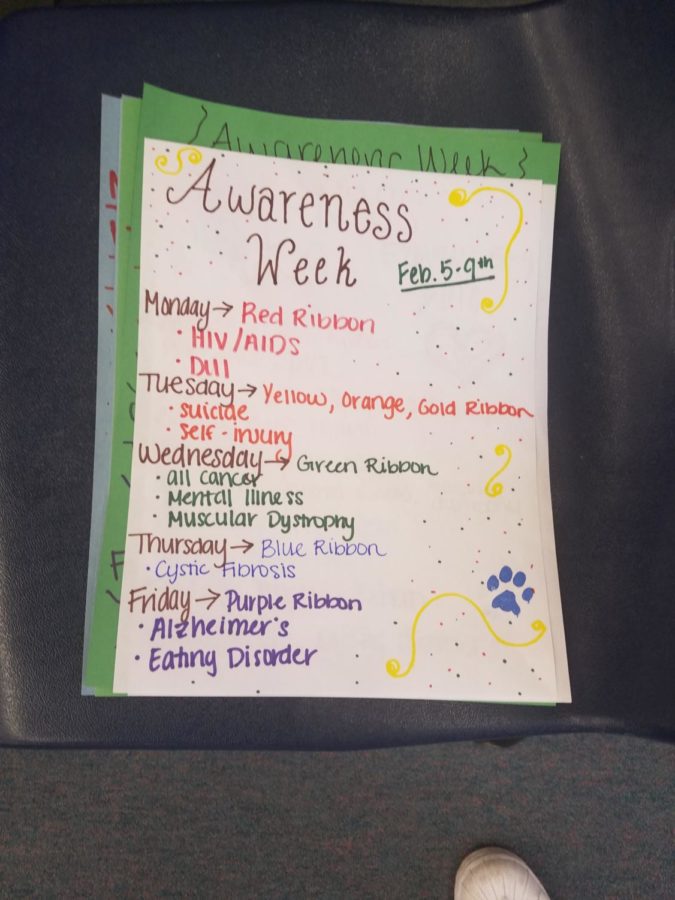 Awareness Week
Awareness
Week
Feb. 5-9th
Monday → Red Ribbon
• HIV/AIDS
• DUI
Tuesday → Yellow, Orange, Gold Ribbon
• suicide
• self-injury
Wednesday → Green Ribbon
• all cancer
• Mental Illness
• Muscular Dystrophy
Thursday → Blue Ribbon
• Cystic Fibrosis
Friday → Purple Ribbon
• Alzheimer's
• Eating Disorder